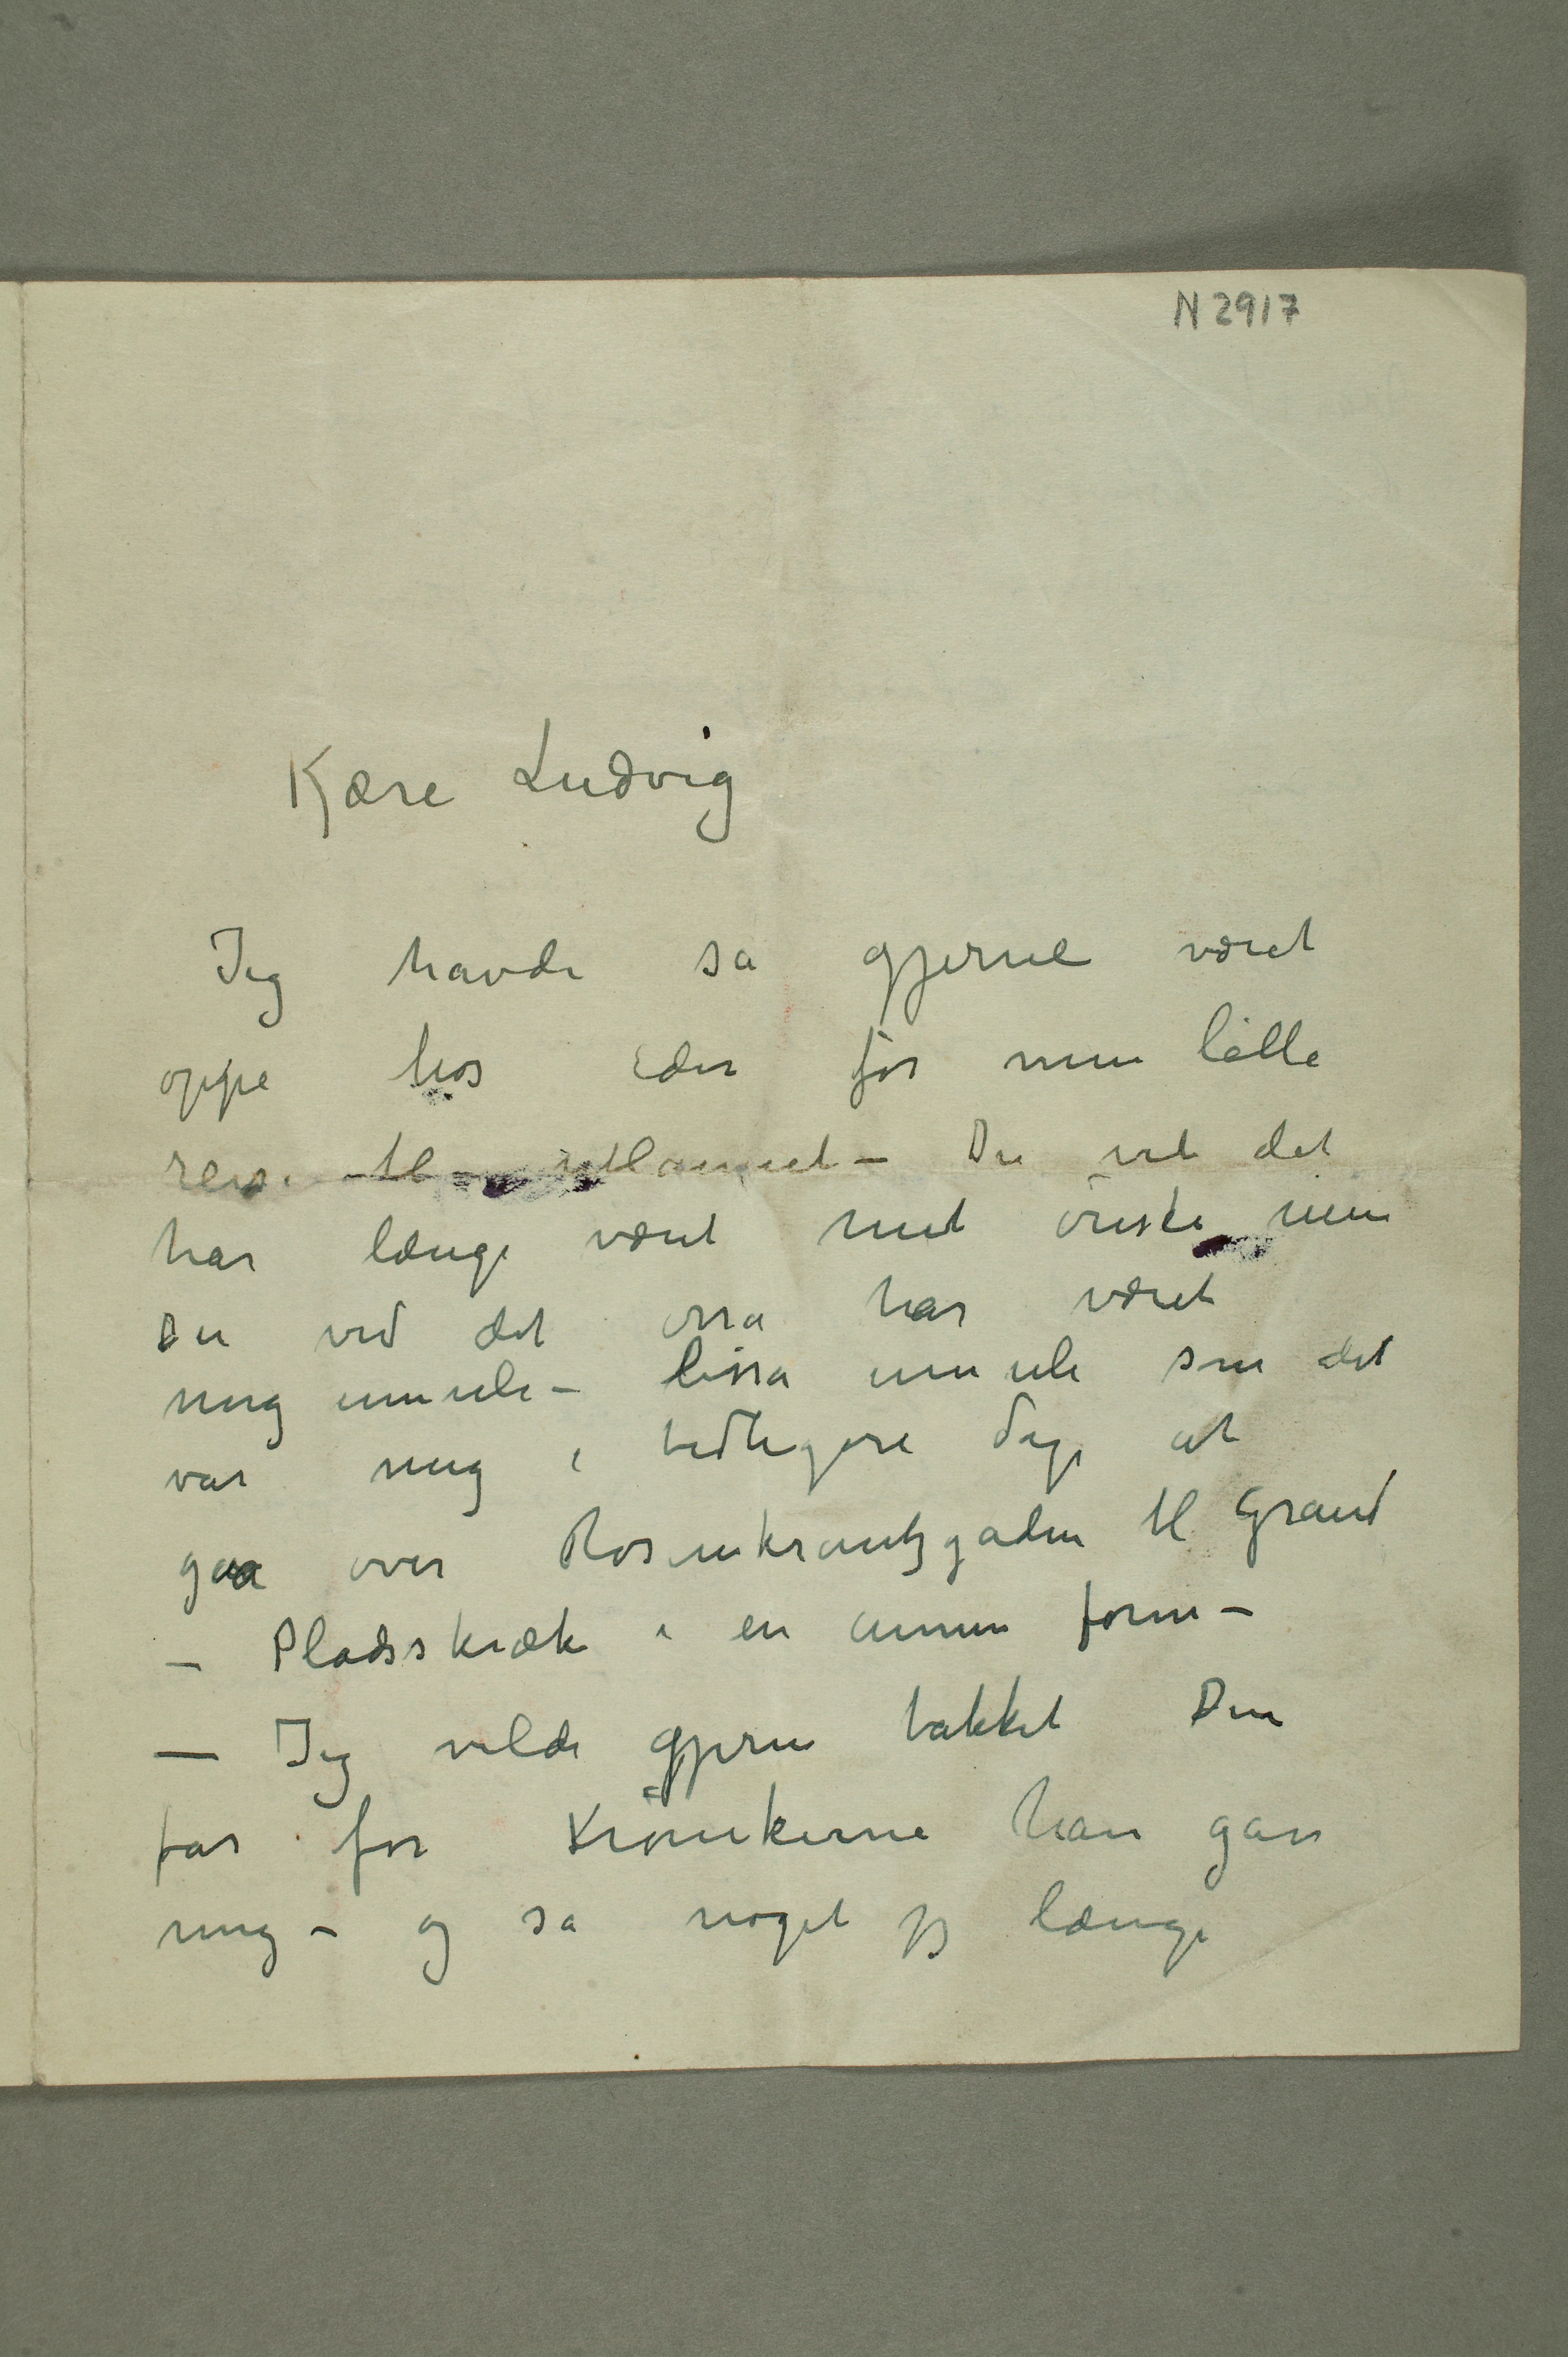 N 2917
Kære Ludvig
Jeg havde så gjerne været
oppe hos eder før min lille
reise til utlannet – Du vet det
har længe været mit ønske men
Du ved det osså har været
mig umule – lisså umule som det
var mig i tidligere dage at
gaa over Rosenkrantzgaden til Grand
– Pladsskræk i en annen form –
– Jeg vilde gjerne takket Din
far for Krönikerne han gav
mig – og så noget jeg længe